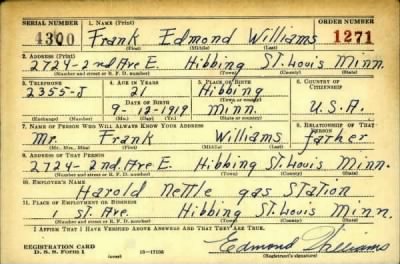 SERIAL NUMBER 1. NAME (Print) ORDER NUMBER
4300 Frank Edmond Williams 1271
(First) (Middle) (Last)
2. ADDRESS (Print)
2724-2nd Ave E. Hibbing St. Louis Minn.
(Number and street or R. F. D. number) (Town) (County) (State)
3. TELEPHONE 4. AGE IN YEARS 5. PLACE OF BIRTH 6. COUNTRY OF CITIZENSHIP
2355-J 21 Hibbing
DATE OF BIRTH (Town or county)
9-12-1919 Minn. U.S.A.
(Exchange) (Number) (Mo.) (Day) (Yr.) (State or country)
7. NAME OF PERSON WHO WILL ALWAYS KNOW YOUR ADDRESS 8. RELATIONSHIP OF THAT PERSON
Mr. Frank Williams father
(Mr., Mrs., Miss) (First) (Middle) (Last)
9. ADDRESS OF THAT PERSON
2724-2nd. Ave E. Hibbing St. Louis Minn.
(Number and street or R. F. D. number) (Town) (County) (State)
10. EMPLOYER'S NAME
Harold Nettle gas Station
11. PLACE OF EMPLOYMENT OR BUSINESS
1 st. Ave. Hibbing St. Louis Minn.
(Number and street or R. F. D. number) (Town) (County) (State)
I AFFIRM THAT I HAVE VERIFIED ABOVE ANSWERS AND THAT THEY ARE TRUE.
REGISTRATION CARD Edmond Williams
D. S. S. FORM 1 (over) (Registrant's signature)